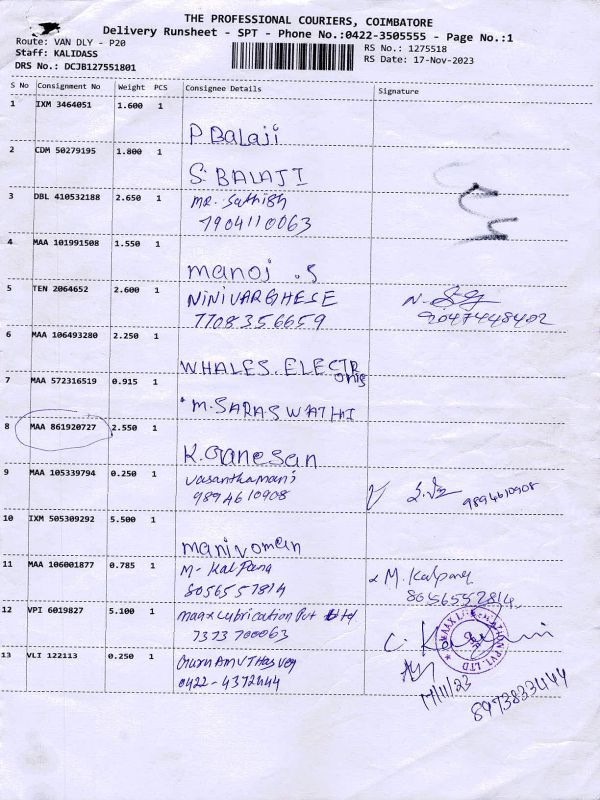 THE PROFESSIONAL COURIERS, COIMBATORE
Delivery Runsheet - SPT - Phone No.:0422-3505555 - Page No.:1
Route: VAN DLY - P20
Staff: KALIDASS
DRS No.: DCJB127551801
RS No.: 1275518
RS Date: 17-Nov-2023
S No Consignment No Weight PCS Consignee Details Signature
1 IXM 3464051 1.600 1
P Balaji
2 CDM 50279195 1.800 1
S. BALAJI
3 DBL 410532188 2.650 1 MR. Sathish
7904110063
4 MAA 101991508 1.550 1
manoj .S
5 TEN 2064652 2.600 1 NINI VARGHESE
7708356659 9047448402
6 MAA 106493280 2.250 1
WHALES. ELECTR
onis
7 MAA 572316519 0.915 1
M. SARASWATHI
8 MAA 861920727 2.550 1
K. Ganesan
9 MAA 105339794 0.250 1 vasanthamani
9894610908 9894610908
10 IXM 505309292 5.500 1
11 MAA 106001877 0.785 1 M- Kalpana M. Kalpana
8056557814 8056552814
12 VPI 6019827 5.100 1 maax Lubrication Pvt Ltd
7373700063
13 VLI 122113 0.250 1
0422-4372444
17/11/23
8973833444